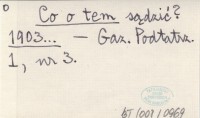 0
Co o tem sądzić?
1903... — Gaz. Podtatrz.
1, nr 3.
BJ/001/0969